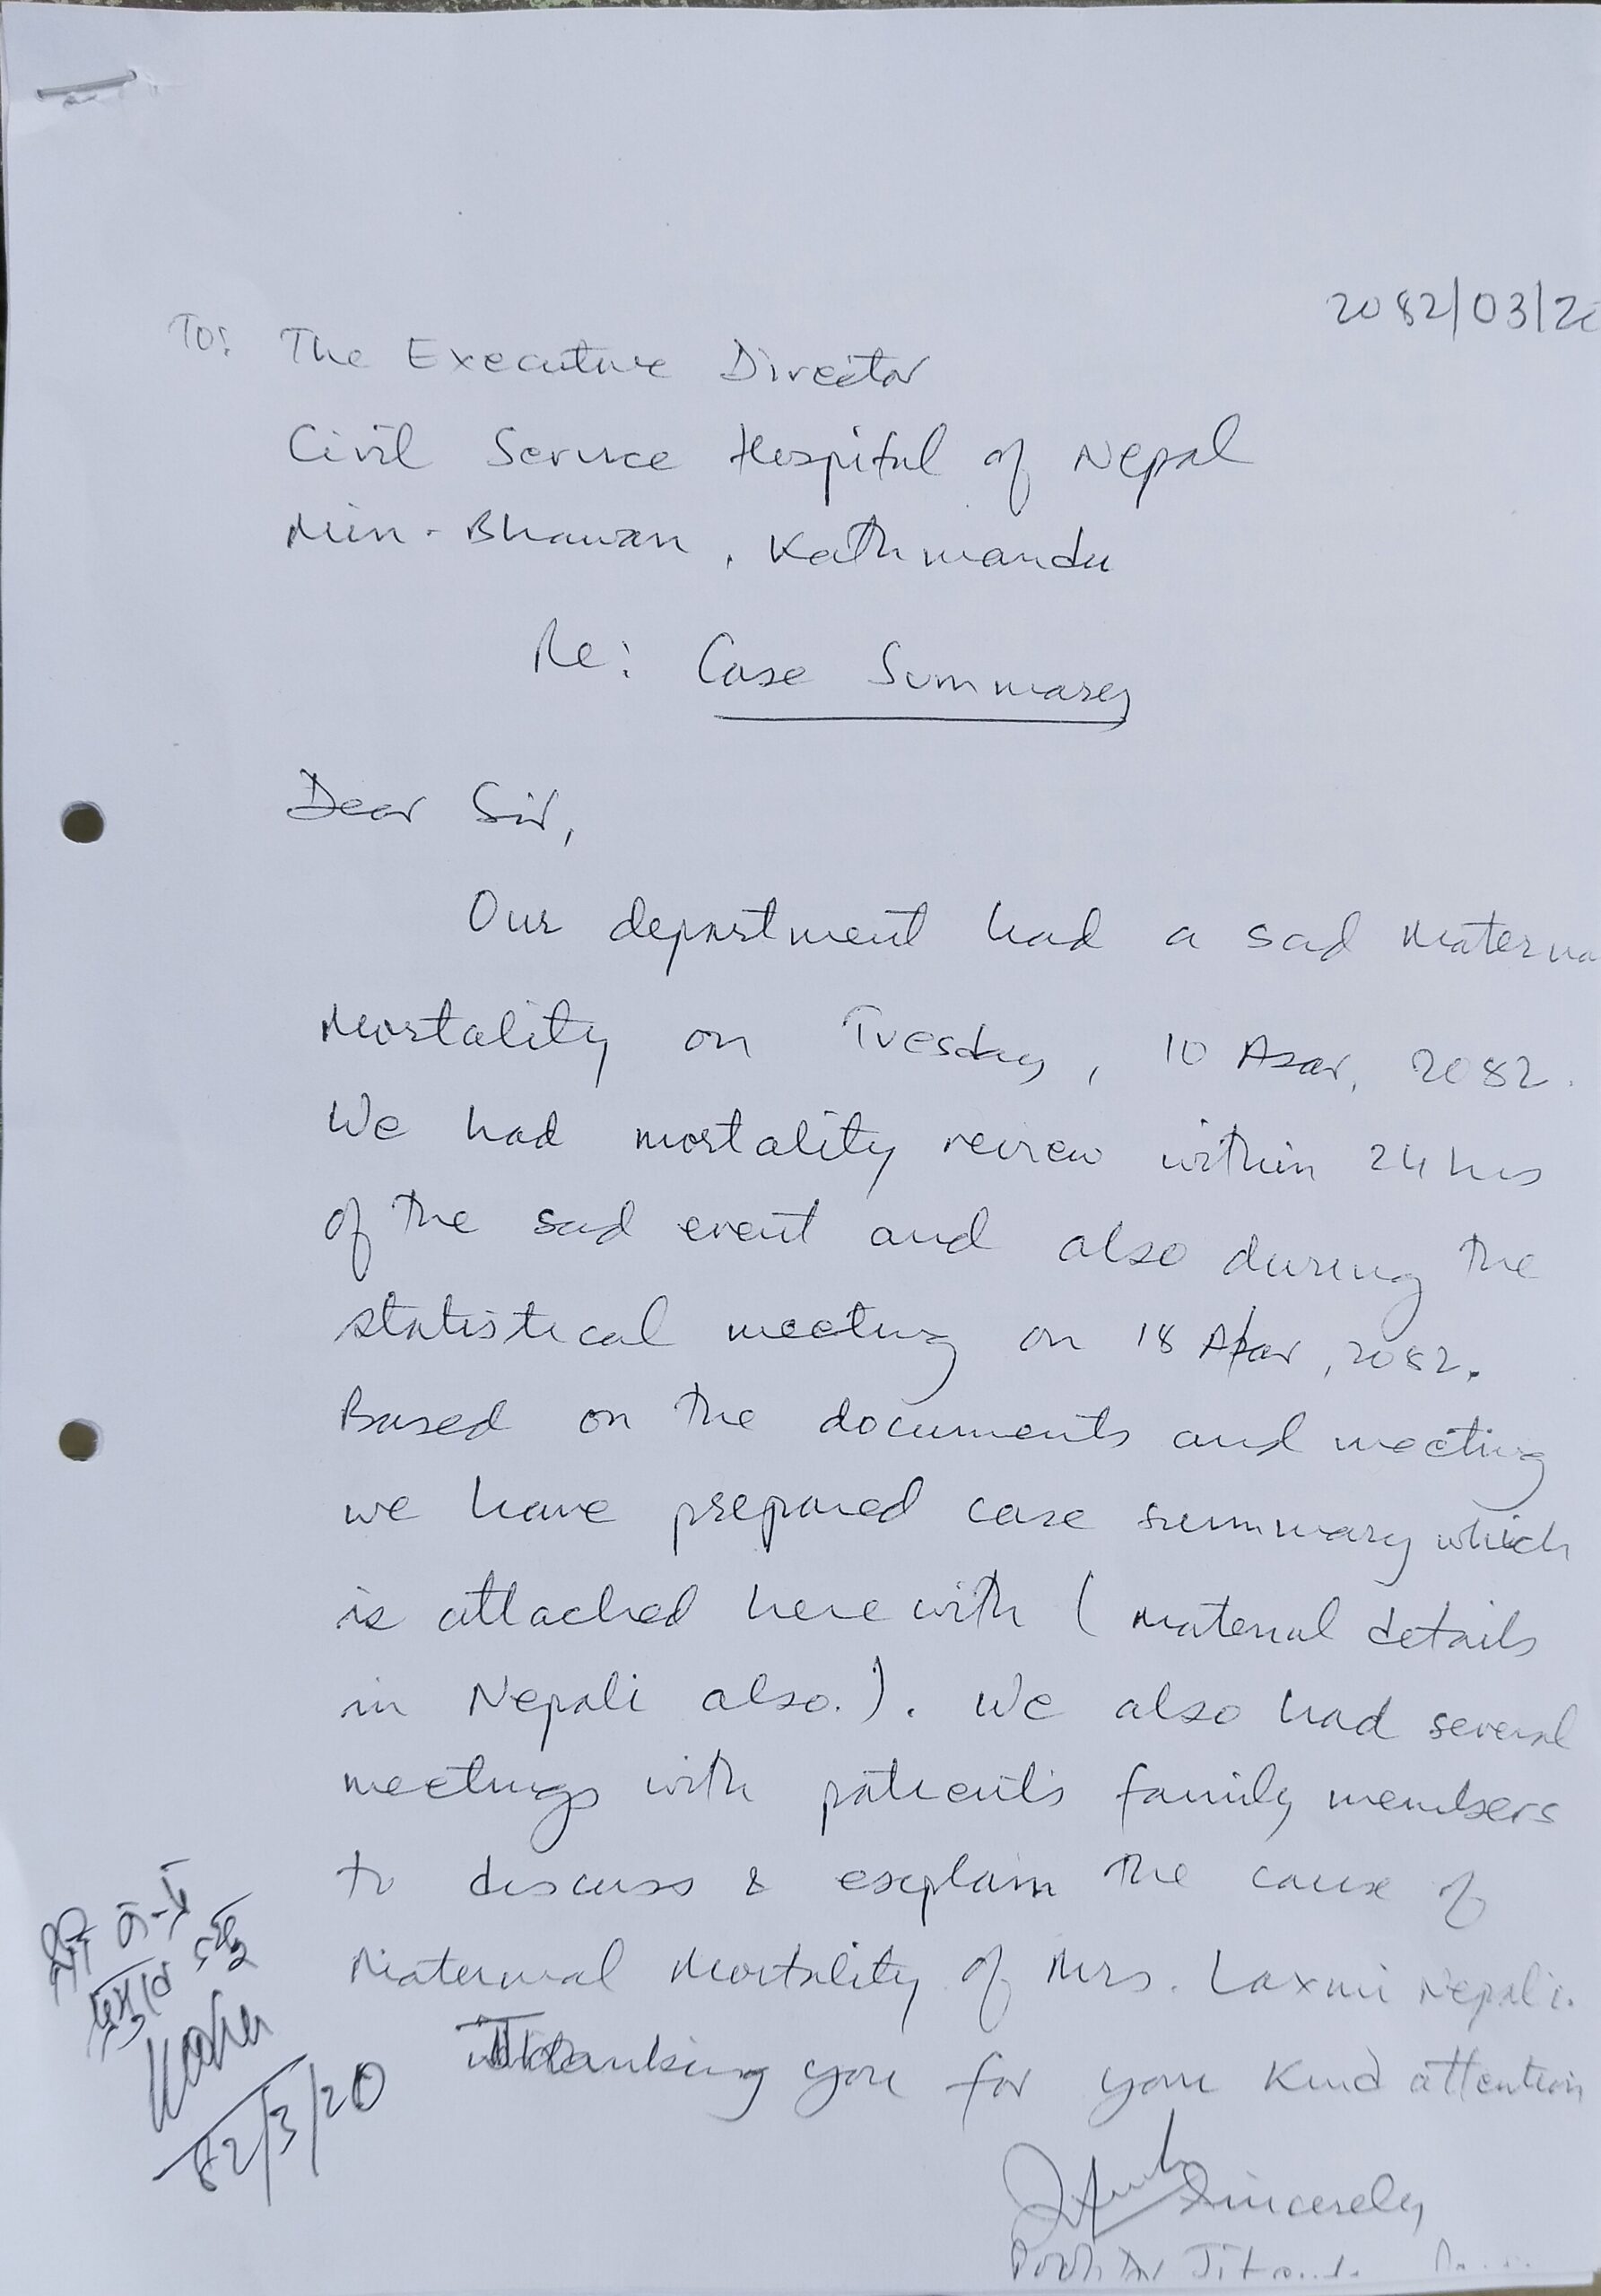 2082/03/20
To: The Executive Director
Civil Service Hospital of Nepal
Min-Bhawan, Kathmandu
Re: Case Summary
Dear Sir,
Our department had a sad materna
Mortality on Tuesday, 10 Asar, 2082.
We had mortality review within 24 hrs
of the sad event and also during the
statistical meeting on 18 Asar, 2082.
Based on the documents and meeting
we have prepared case summary which
is attached here with ( maternal details
in Nepali also.). We also had several
meetings with patient's family members
to discuss & explain the cause of
Maternal Mortality of Mrs. Laxmi Nepali.
Thanking you for your kind attention
82/3/20
Sincerely